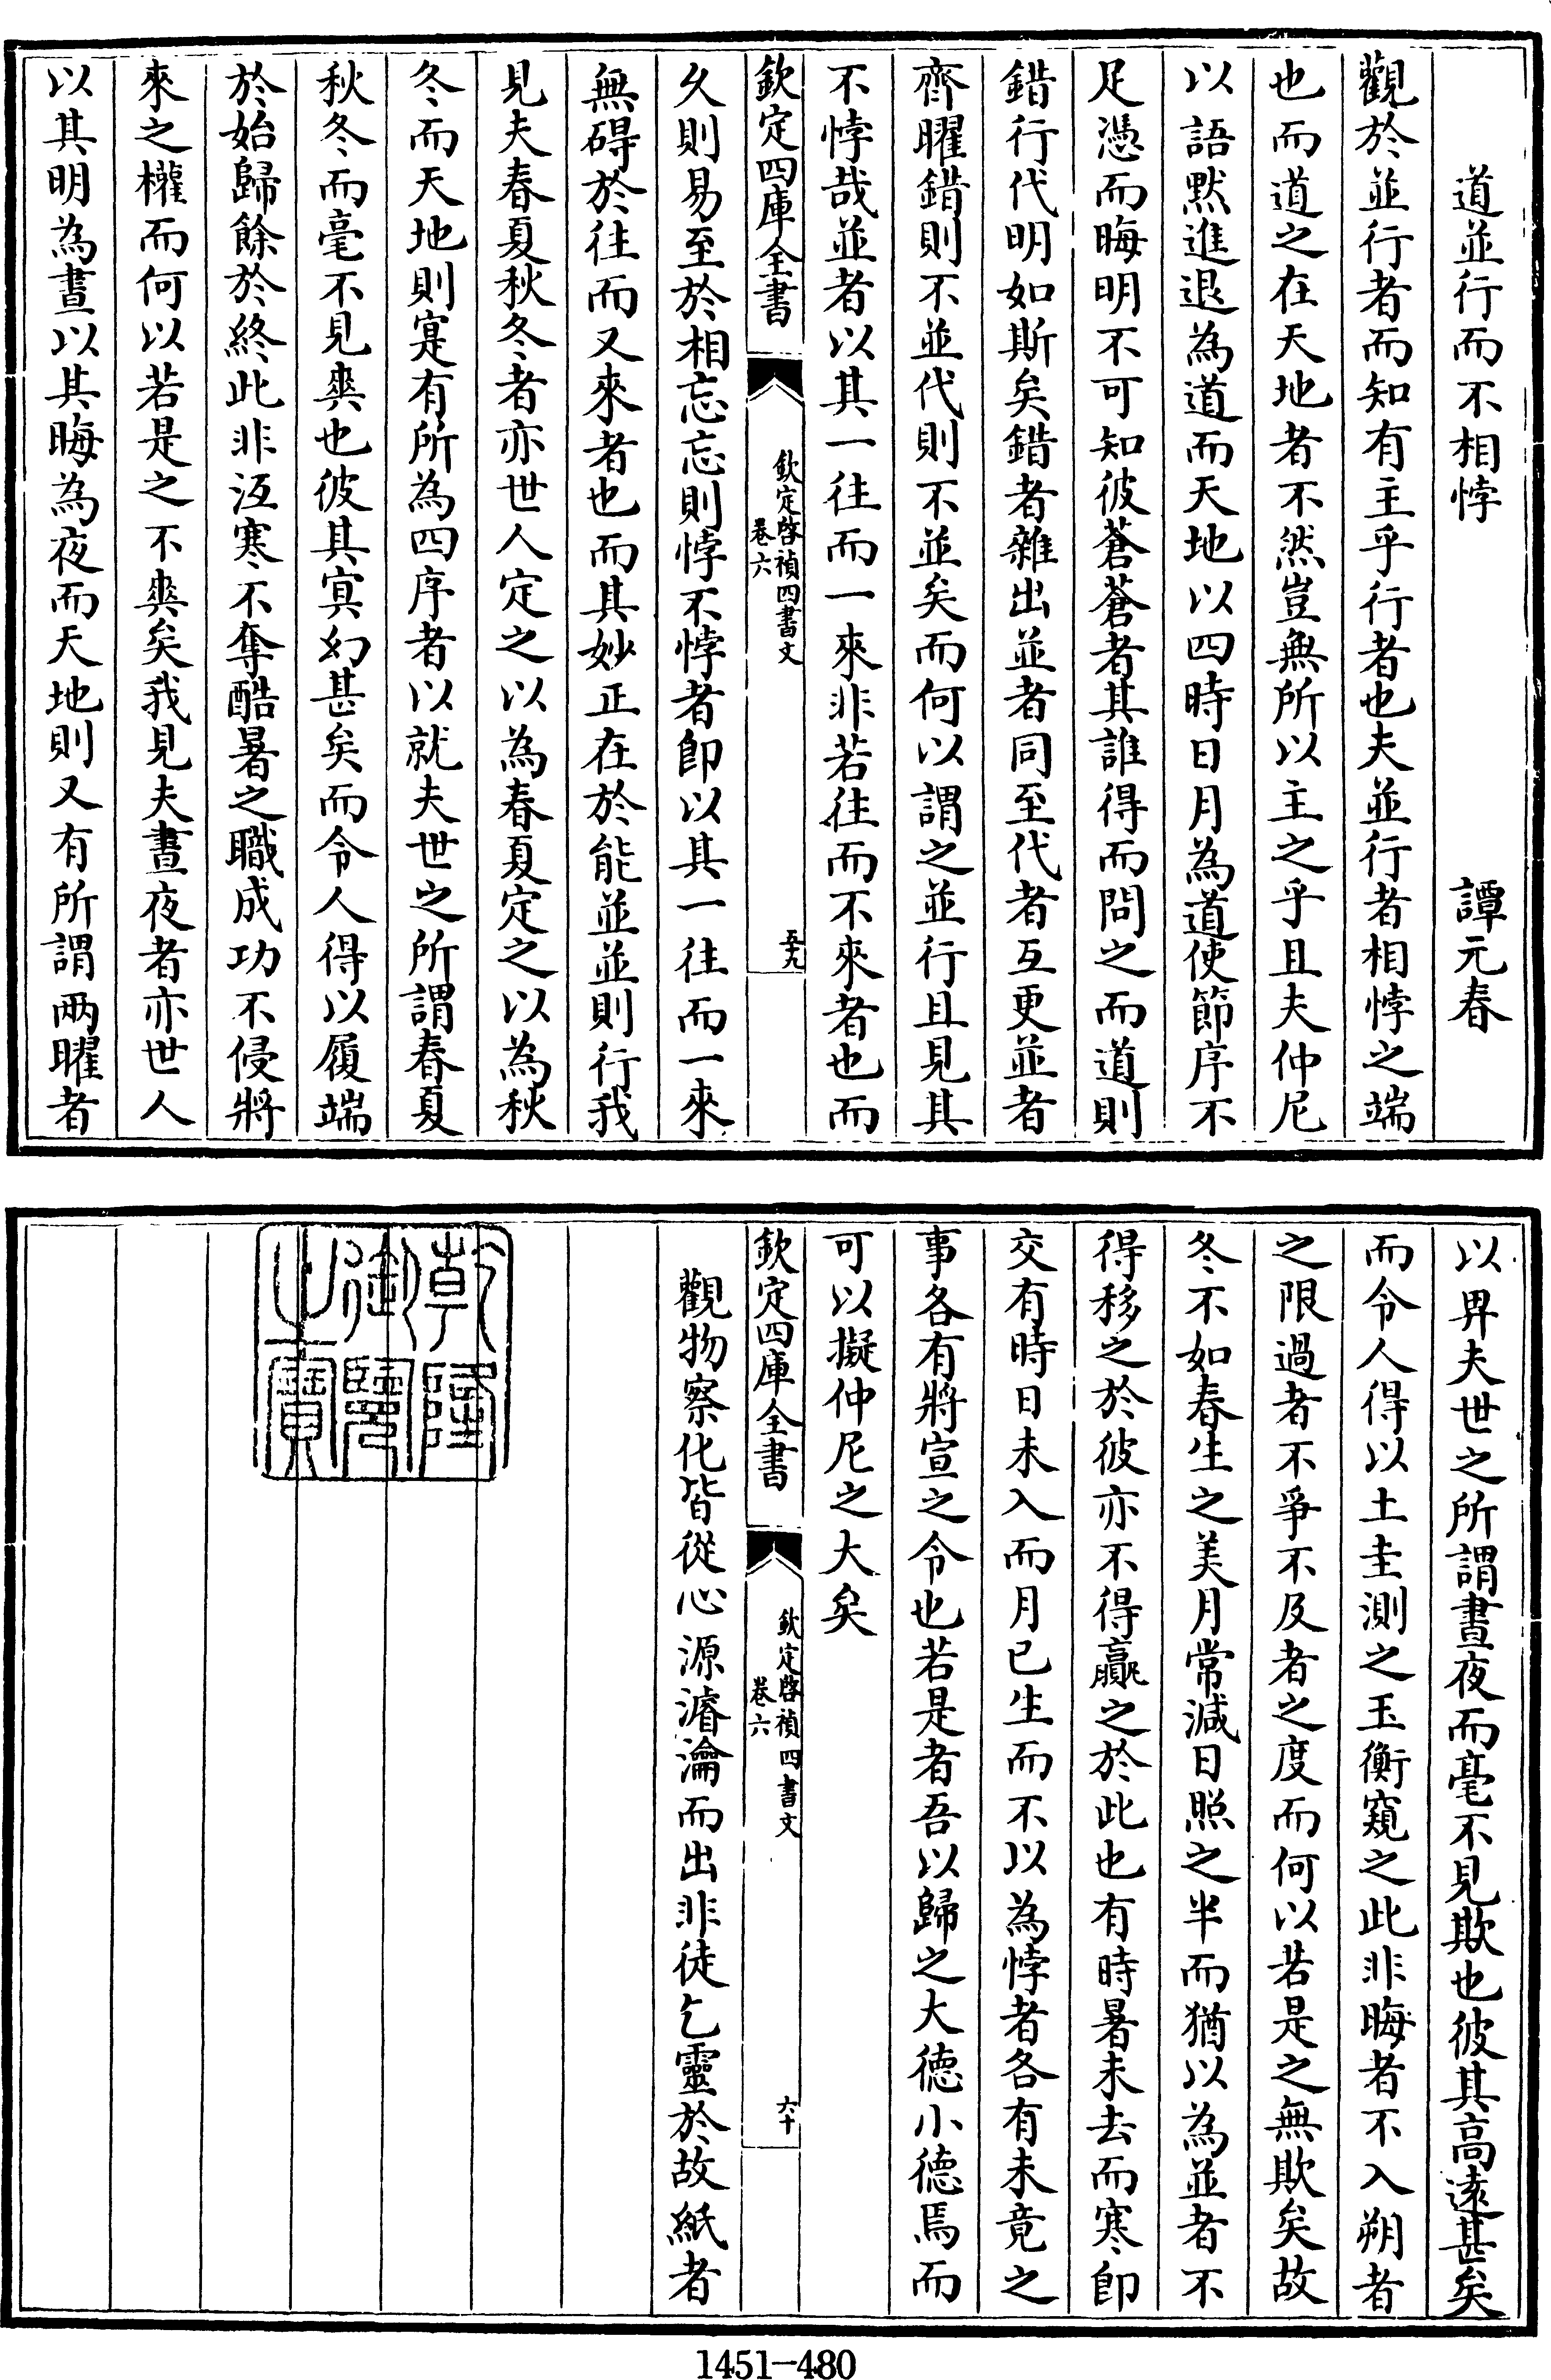 道並行而不相悖　譚元春
觀於並行者而知有主乎行者也夫並行者相悖之端
也而道之在天地者不然豈無所以主之乎且夫仲尼
以語默進退為道而天地以四時日月為道使節序不
足憑而晦明不可知彼蒼蒼者其誰得而問之而道則
錯行代明如斯矣錯者雜出並者同至代者互更並者
齊曜錯則不並代則不並矣而何以謂之並行且見其
不悖哉並者以其一往而一來非若往而不來者也而
欽定四庫全書
欽定啓禎四書文
卷六
五十九
久則易至於相忘忘則悖不悖者即以其一往而一來
無碍於往而又來者也而其妙正在於能並並則行我
見夫春夏秋冬者亦世人定之以為春夏定之以為秋
冬而天地則寔有所為四序者以就夫世之所謂春夏
秋冬而毫不見爽也彼其寘幻甚矣而令人得以履端
於始歸餘於終此非沍寒不奪酷暑之職成功不侵將
來之權而何以若是之不爽矣我見夫晝夜者亦世人
以其明為晝以其晦為夜而天地則又有所謂兩曜者
以畀夫世之所謂晝夜而毫不見欺也彼其高遠甚矣
而令人得以土圭測之玉衡窺之此非晦者不入朔者
之限過者不爭不及者之度而何以若是之無欺矣故
冬不如春生之美月常減日照之半而猶以為並者不
得移之於彼亦不得贏之於此也有時暑未去而寒即
交有時日未入而月已生而不以為悖者各有未竟之
事各有將宣之令也若是者吾以歸之大德小德焉而
可以擬仲尼之大矣
欽定四庫全書
欽定啓禎四書文
卷六
六十
觀物察化皆從心源濬瀹而出非徒乞靈於故紙者
乾隆
御覽
之寶
1451-480